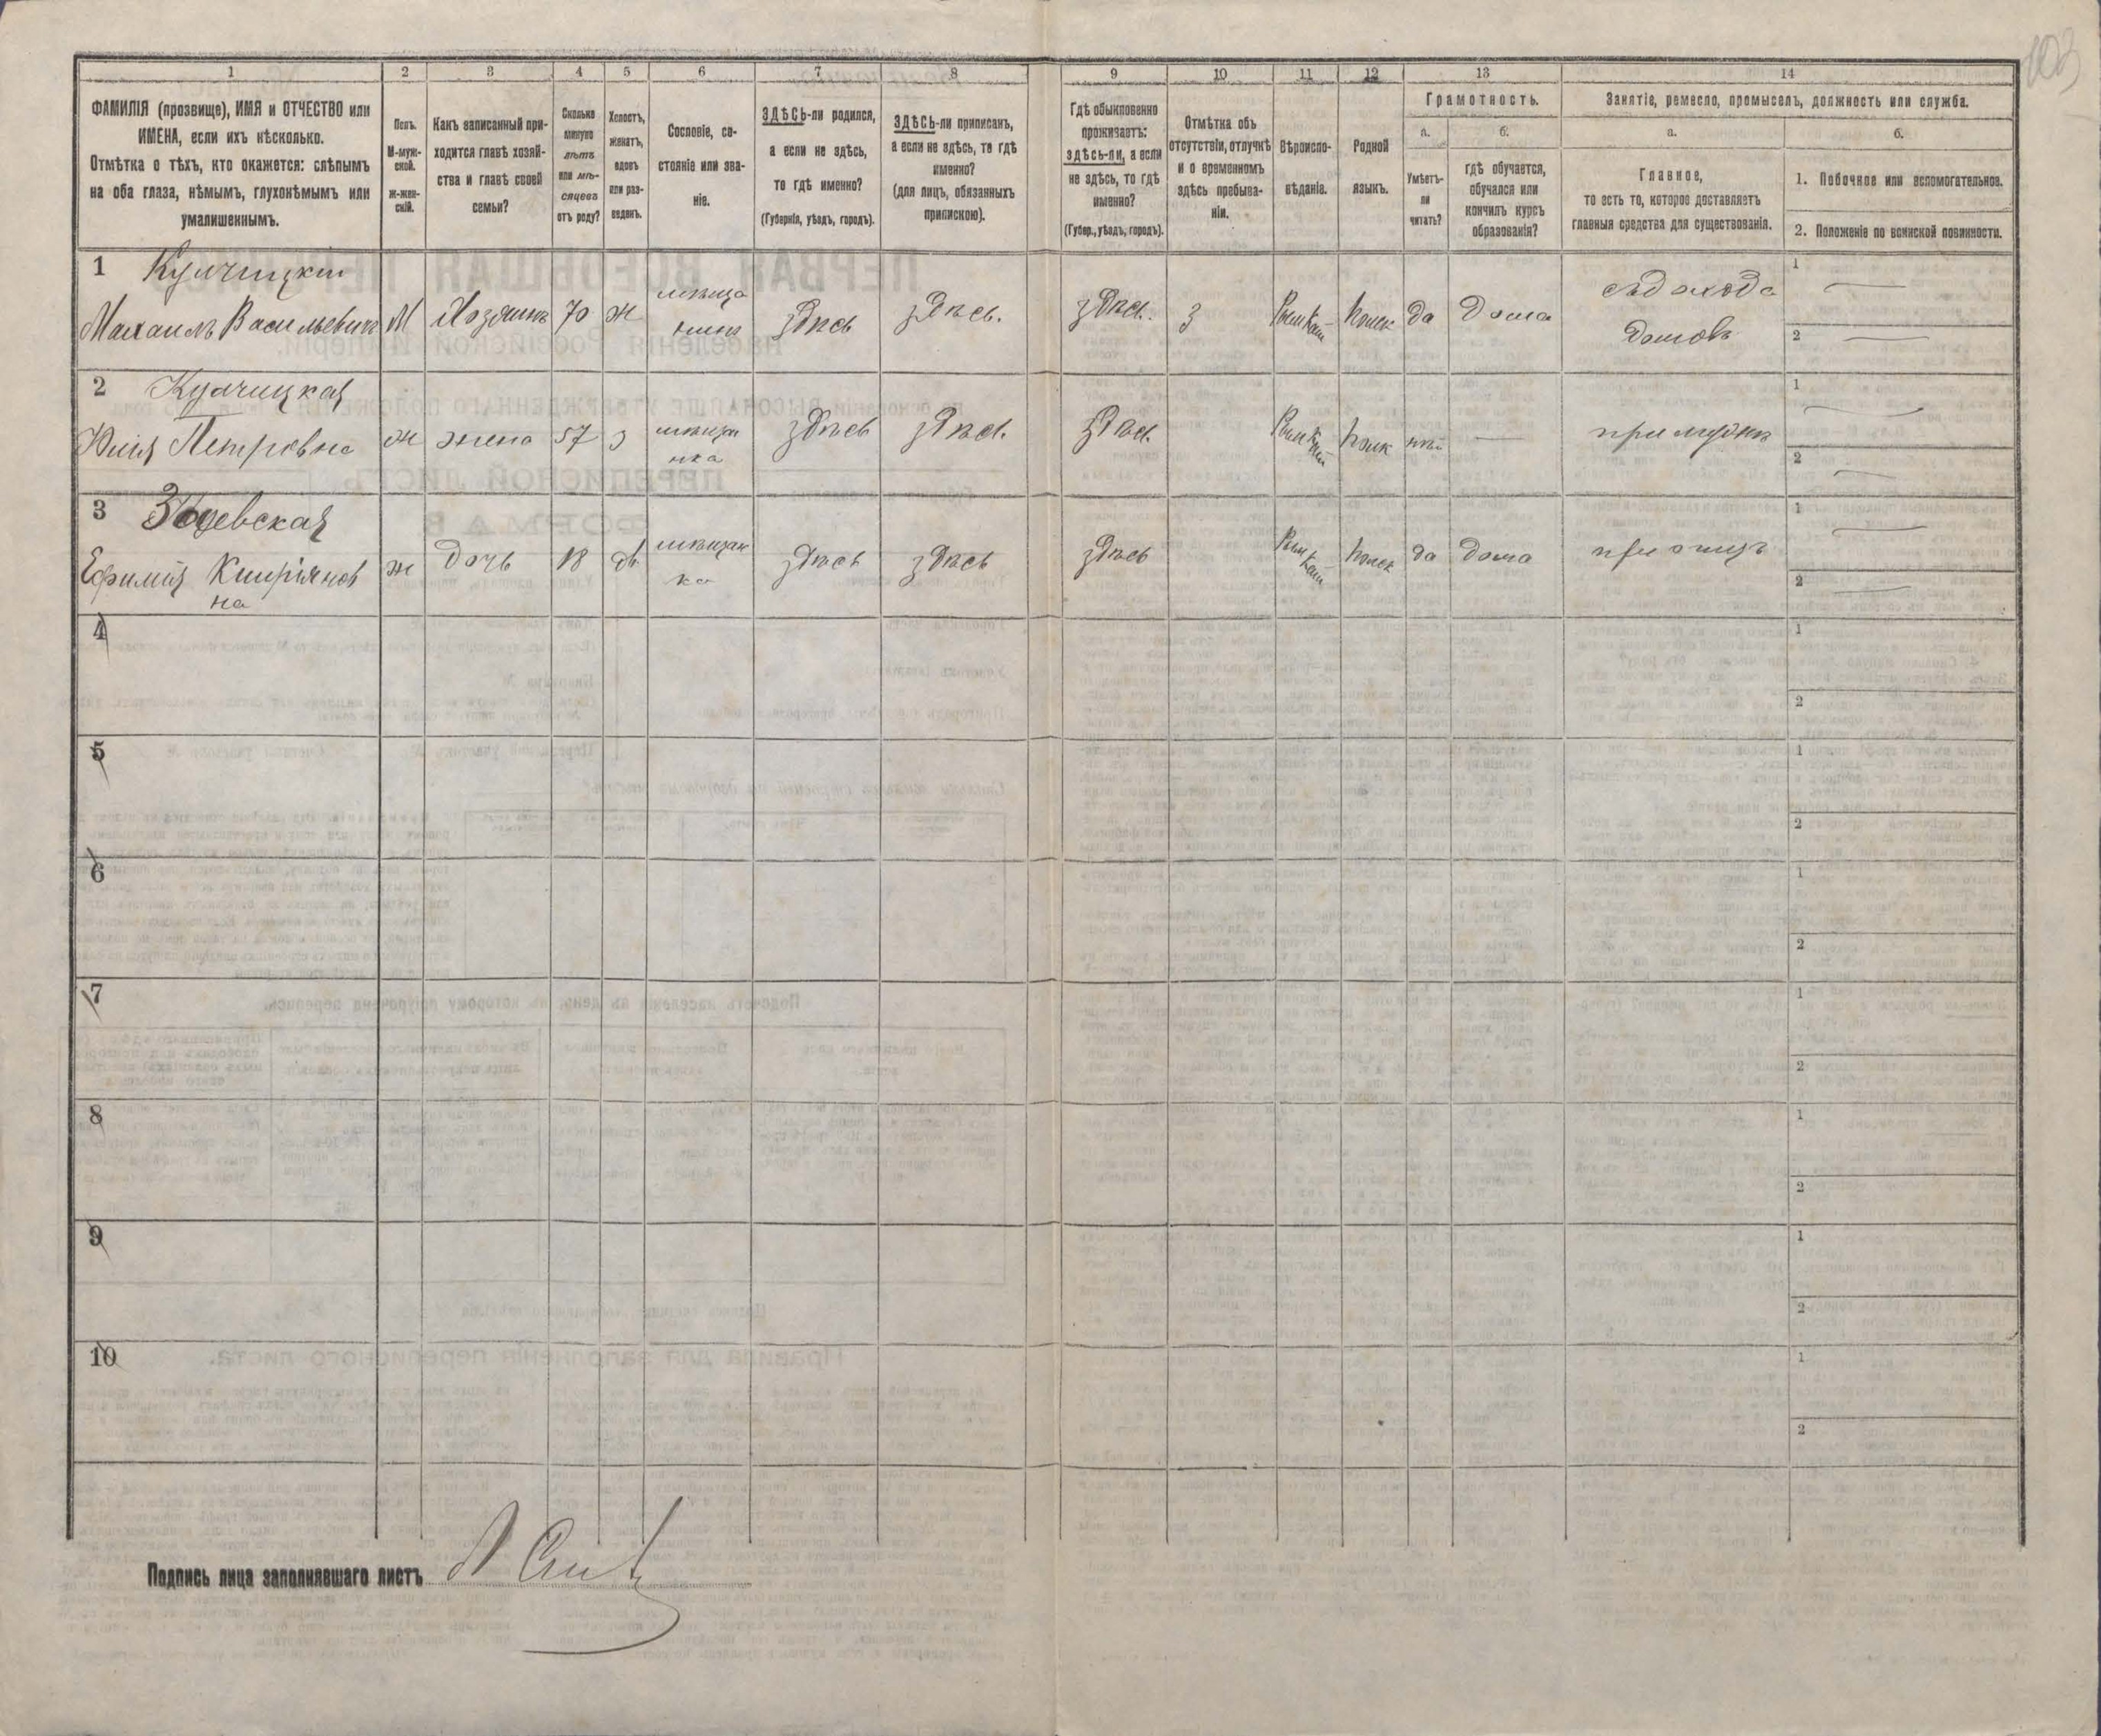 103
1 2 3 4 5 6 7 8 9 10 11 12 13 14
ФАМИЛІЯ (прозвище), ИМЯ и ОТЧЕСТВО или
ИМЕНА, если ихъ нѣсколько.
Отмѣтка о тѣхъ, кто окажется: слѣпымъ
на оба глаза, нѣмымъ, глухонѣмымъ или
умалишеннымъ.
Полъ.
М-муж-
ской.
Ж-жен-
скій.
Какъ записанный при-
ходится главѣ хозяй-
ства и главѣ своей
семьи?
Сколько
минуло
лѣтъ
или мѣ-
сяцевъ
отъ роду?
Холостъ,
женатъ,
вдовъ
или раз-
веденъ.
Сословіе, со-
стояніе или зва-
ніе.
ЗДѢСЬ-ли родился,
а если не здѣсь,
то гдѣ именно?
(Губернія, уѣздъ, городъ).
ЗДѢСЬ-ли приписанъ,
а если не здѣсь, то гдѣ
именно?
(для лицъ, обязанныхъ
припискою).
Гдѣ обыкновенно
проживаетъ:
здѣсь-ли, а если
не здѣсь, то гдѣ
именно?
(Губер., уѣздъ, городъ).
Отмѣтка объ
отсутствіи, отлучкѣ
и о временномъ
здѣсь пребыва-
ніи.
Вѣроиспо-
вѣданіе.
Родной
языкъ.
Грамотность.
а.
Умѣетъ-
ли
читать?
б.
гдѣ обучается,
обучался или
кончилъ курсъ
образованія?
Занятіе, ремесло, промыселъ, должность или служба.
а.
Главное,
то есть то, которое доставляетъ
главныя средства для существованія.
б.
1. Побочное или вспомогательное.
2. Положеніе по воинской повинности.
1 Кулчицкій
Михаилъ Васильевичъ М Хозяинъ 70 ж мѣща
нинъ здѣсь здѣсь. здѣсь. З Рим Кат польск да дома
съ дохода
домовъ
1 —
2 —
2 Кулчицкая
Юлія Петровна ж жена 57 з мѣщан
нка здѣсь здѣсь. здѣсь. Рим Кат польск нѣт — при мужѣ
1 —
2 —
3
Ефимія Кипріянов
на ж дочь 18 дѣ мѣщан
ка здѣсь здѣсь здѣсь Рим Кат польск да дома при отцѣ
1 —
2 —
4 1
2
5 1
2
6 1
2
7 1
2
8 1
2
9 1
2
10 1
2
Подпись лица заполнявшаго листъ